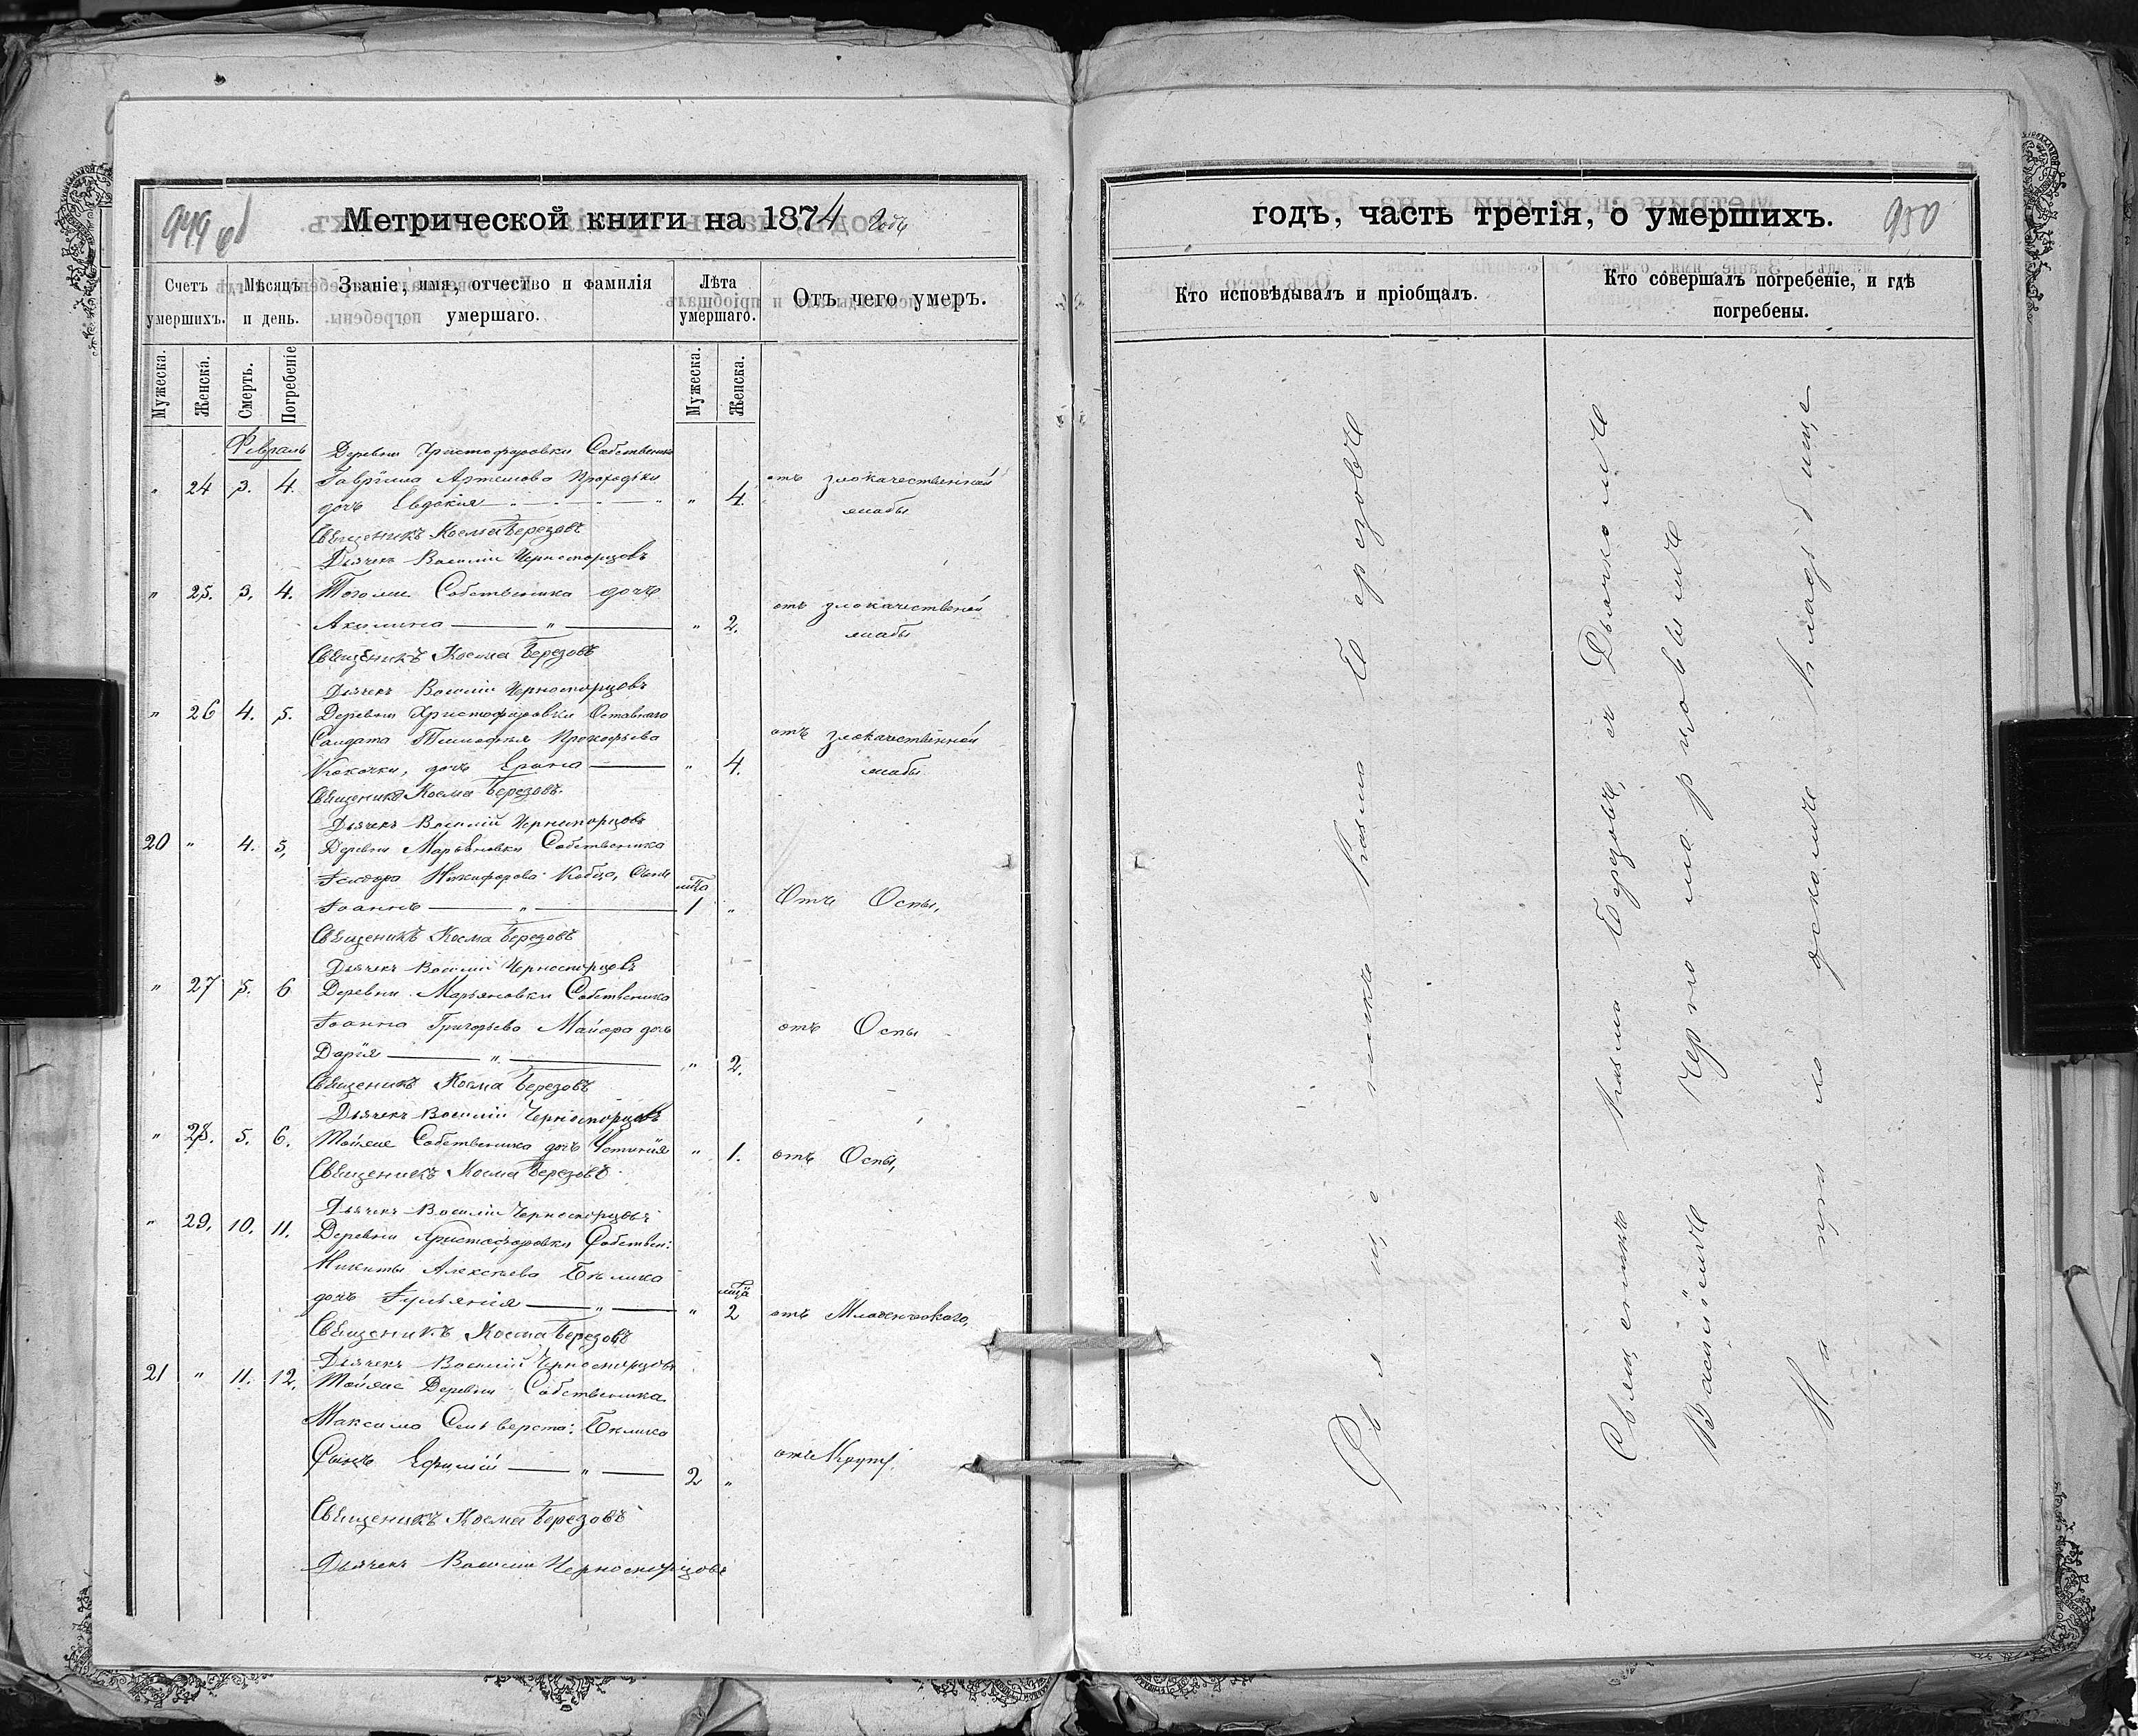 949 об
Метрической книги на 1874 годъ
Счетъ умершихъ.
Мѣсяцъ и день.
Званіе, имя, отчество и фамилія умершаго.
Лѣта умершаго.
Отъ чего умеръ.
Мужеска.
Женска.
Смерть.
Погребеніе
Мужеска.
Женска.
Февраль
Деревни Христофоровки Собственника
" 24 3. 4. Гавріила Артемова
дочь Евдокія " 4. отъ злокачественной жабы
Священникъ Косма Березовъ
Дьячекъ Василій Черноморцовъ
" 25. 3. 4. Тогоже Собственника дочь
Акилина " " 2. отъ злокачественной жабы
Священникъ Косма Березовъ
Дьячекъ Василій Черноморцовъ
" 26 4. 5. Деревни Христофоровки Отставнаго
Солдата Тимофея Прокофьева
дочь " 4. отъ злокачественной жабы
Священникъ Косма Березовъ.
Дьячекъ Василій Черноморцовъ
20 " 4. 5. Деревни Марьяновки Собственника
Никифорова Кобца, Сынъ
Іоаннъ " 1 " Отъ Оспы,
Священникъ Косма Березовъ
Дьячекъ Василій Черноморцовъ
" 27 5. 6 Деревни Марьяновки Собственника
Іоанна Григорьева Майора дочь
Дарія " " 2. отъ Оспы
Священникъ Косма Березовъ
Дьячекъ Василій Черноморцовъ
" 28. 5. 6. Тойже Собственника дочь " 1. отъ Оспы,
Священникъ Косма Березовъ
Дьячекъ Василій Черноморцовъ
" 29. 10. 11. Деревни Христофоровки Собствен:
Никиты Алексѣева Бѣлика
дочь Іуліанія " " 2 отъ Младенческаго,
Священникъ Косма Березовъ
Дьячекъ Василій Черноморцовъ
21 " 11. 12. Тойже Деревни Собственника
Максима Бѣлика
Сынъ Ефимій " 2 "
Священникъ Косма Березовъ
Дьячекъ Василій Черноморцовъ
годъ, часть третія, о умершихъ.
950
Кто исповѣдывалъ и пріобщалъ.
Кто совершалъ погребеніе, и гдѣ погребены.
Священникъ Косма Березовъ
Священникъ Косма Березовъ, съ Дьячкомъ
Василіемъ Черноморцовымъ
На кладбище